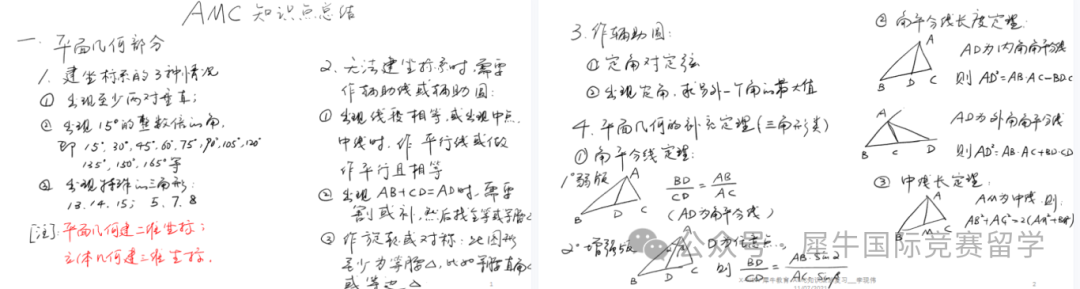 AMC 知识点总结
一. 平面几何部分
1. 建坐标系的3种情况
① 出现至少两对垂直;
② 出现15°的整数倍的角,
即 15°, 30°, 45°, 60°, 75°, 90°, 105°, 120°
135°, 150°, 165° 等
③ 出现特殊的三角形:
13. 14. 15; 5. 7. 8
[注]: 平面几何建二维坐标;
立体几何建三维坐标.
2. 无法建坐标系时, 需要
作辅助线或辅助圆:
① 出现线段相等, 或出现中点,
中线时, 作平行线或做
作平行且相等
② 出现 AB+CD=AD时, 需要
割或补, 然后找全等或等腰△
③ 作旋转或对称: 此图形
至少为等腰△, 比如等腰直角△
或等边△
1
3. 作辅助圆:
① 定角对定弦
② 出现定角, 求另外一个角的最大值
4. 平面几何的补充定理 (三角形类)
① 角平分线定理:
1° 弱版
A
B D C
BD/CD = AB/AC
(AD为角平分线)
2° 增强版
A
B D C
D为任意点
则 BD/CD = AB·Sin
公众号·犀牛国际竞赛留学
② 角平分线长度定理:
A
B D C
AD为内角角平分线
则 AD²=AB·AC-BD·DC
A
B C D
AD为外角角平分线
则 AD²=AB·AC+BD·CD
③ 中线长定理:
A
B M C
AM为中线, 则:
2